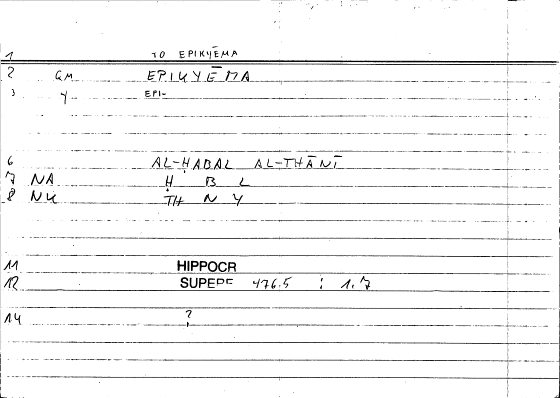 1 TO EPIKYĒMA
2 GM EPIKYĒMA
3 Y EPI-
6 AL-ḤABAL AL-THĀNĪ
7 NA Ḥ B L
8 NK TH N Y
11 HIPPOCR
12 SUPERF 476.5 ; 1.7
14 ?